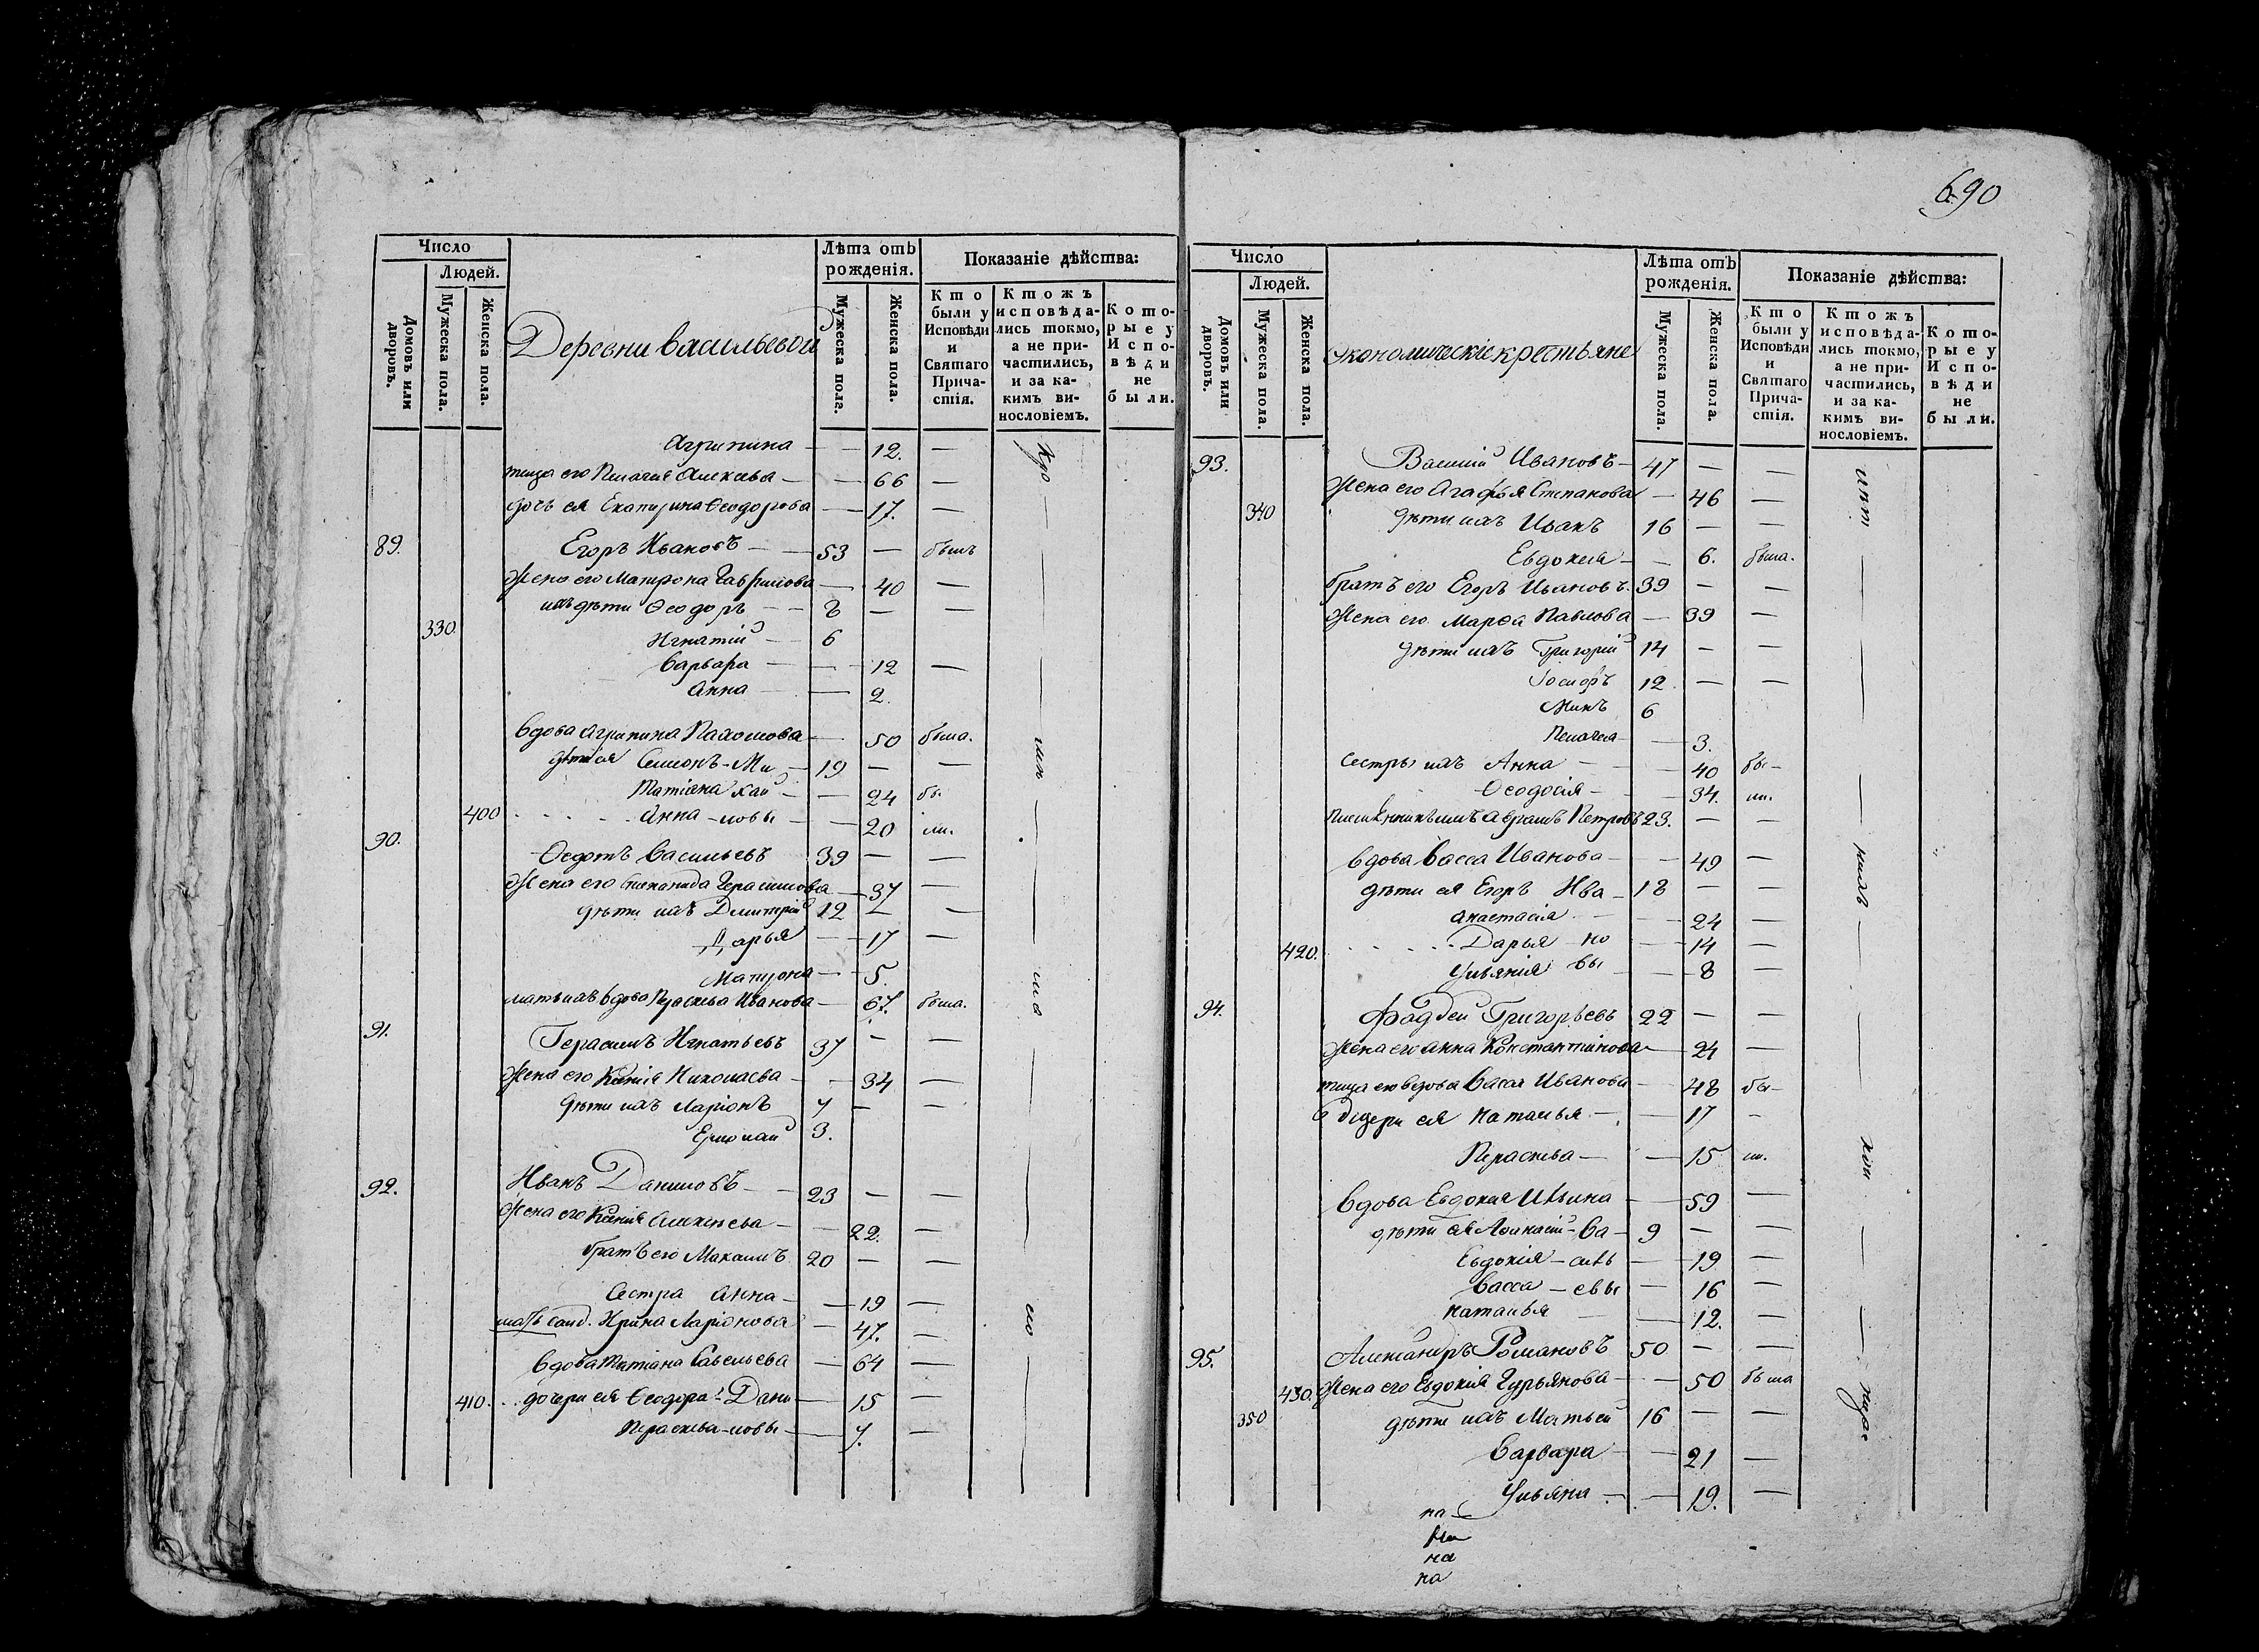 690
Число
Людей.
Домовъ или дворовъ.
Мужеска пола.
Женска пола.
Деревни васильевой
Лѣта отъ рожденія.
Мужеска пола.
Женска пола.
Показаніе дѣйства:
Кто были у Исповѣди и Святаго Прича-стія.
Ктожъ исповѣда-лись токмо, а не при-частились, и за ка-кимъ ви-нословіемъ.
Кото-рые у Испо-вѣди не были.
Агрипина — — 12. —
теща его Пелагия Алексѣева — — 66 —
дочь ея Екатерина Ѳеодорова — 17. —
89. Егоръ Ивановъ — 53 — былъ
Жена его Матрона Гаврилова — 40 —
ихъ дѣти Ѳеодоръ — 8 — —
330. Игнатій — 6
Варвара — — 12 —
Анна — — 2.
вдова Агрипина Пахомова — 50 была.
дѣти ея Симонъ - Ми — 19 — —
Татіана хай — — 24 бы.
400 Анна - ловы — — 20 ли.
90. Ѳедотъ Васильевъ 39 — —
Жена его Степанида Герасимова — 37 —
дѣти ихъ Димитрій 12 — —
Дарья — — 17 —
Матрона — — 5.
мать ихъ вдова Праскева Иванова — 67. была.
91. Герасимъ Игнатьевъ 37 — —
Жена его Ксенія Николаева — — 34 —
дѣти ихъ Ларіонъ 7 — —
Ермолай 3.
92. Иванъ Даниловъ — 23 — —
Жена его Ксенія Алексѣева — — 22. —
братъ его Максимъ 20 — —
Сестра Анна — — 19 —
мать Ирина Ларіонова — 47. —
вдова Татіана Савельева — 64 —
410. дочери ея Ѳеодора - Дани — 15 —
Праскева - ловы — 7. —
Число
Людей.
Домовъ или дворовъ.
Мужеска пола.
Женска пола.
Экономическіе крестьяне
Лѣта отъ рожденія.
Мужеска пола.
Женска пола.
Показаніе дѣйства:
Кто были у Исповѣди и Святаго Прича-стія.
Ктожъ исповѣда-лись токмо, а не при-частились, и за ка-кимъ ви-нословіемъ.
Кото-рые у Испо-вѣди не были.
93. Василій Ивановъ — 47 — —
Жена его Агафья Степанова — 46 —
340 дѣти ихъ Иванъ 16 — —
Евдокея — — 6. была.
братъ его Егоръ Ивановъ. 39 — —
Жена его Марѳа Павлова — 39 —
дѣти ихъ Григорій 14 — —
Іосифъ 12. — —
Минъ 6
Пелагея — 3.
сестры ихъ Анна — — 40 бы —
Ѳеодосія — — 34. ли.
Авраамъ Петровъ 23. — —
вдова Васса Иванова — — 49 —
дѣти ея Егоръ Ива — 18 — —
Анастасія — — 24 —
420. Дарья но — 14 —
Ульянія вы — 8 —
94. Фаддей Григорьевъ 22 — —
Жена его Анна Константинова — 24 —
теща его вдова Васса Иванова — 48 бы —
дщери ея Наталья — — 17 —
Праскева — — 15 ли.
вдова Евдокея Ильина — 59 —
дѣти ея Аѳанасій - Ва — 9 — —
Евдокія - силь — 19 —
Васса - евы — 16 —
Наталья — 12. —
95. Александръ Романовъ 50 — —
430. Жена его Евдокія Гурьянова — 50 была
350 дѣти ихъ Матвей 16 — —
Варвара — — 21 —
Ульяна — — 19. —
на
на
на